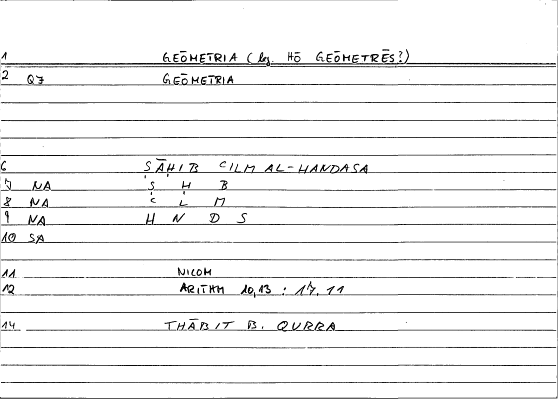 1 GEŌMETRIA (leg. HŌ GEŌMETRĒS?)
2 Q7 GEŌMETRIA
6 ṢĀḤIB ʿILM AL-HANDASA
7 NA Ṣ Ḥ B
8 NA ʿ L M
9 NA H N D S
10 SA
11 NICOM
12 ARITHM 10,13 : 17,11
14 THĀBIT B. QURRA